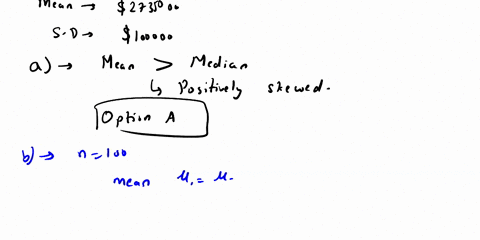 Mean → $273500
S.D → $100000
a) → Mean > Median
↳ Positively skewed.
Option A
b) → n=100
mean μ₁ = μ.